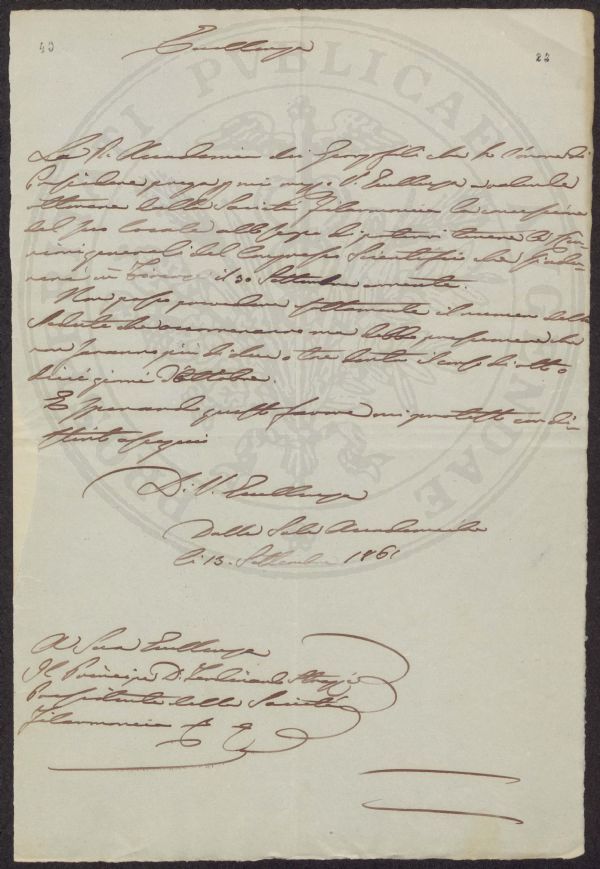 43
22
Eccellenza
La R. Accademia dei Georgofili che ho l'onore di
Presiedere prega mio mezzo V. Eccellenza a volerle
ottenere dalla Società Filarmonica la concessione
del suo locale allo scopo di potervi tenere le Adu-
nanze generali del Congresso Scientifico che
in Firenze il 30 Settembre corrente.
Non posso precisare il numero delle
Sedute che occorreranno ma debbo
saranno più di due o tre dentro il corso di otto o
dieci giorni d'Ottobre.
E sperando questo favore mi protesto con di-
stinto ossequio
Di V. Eccellenza
Dalle Sale Accademiche
li 13. Settembre 1861
A Sua Eccellenza
Il Principe D. Ferdinando Strozzi
Presidente della Società
Filarmonica